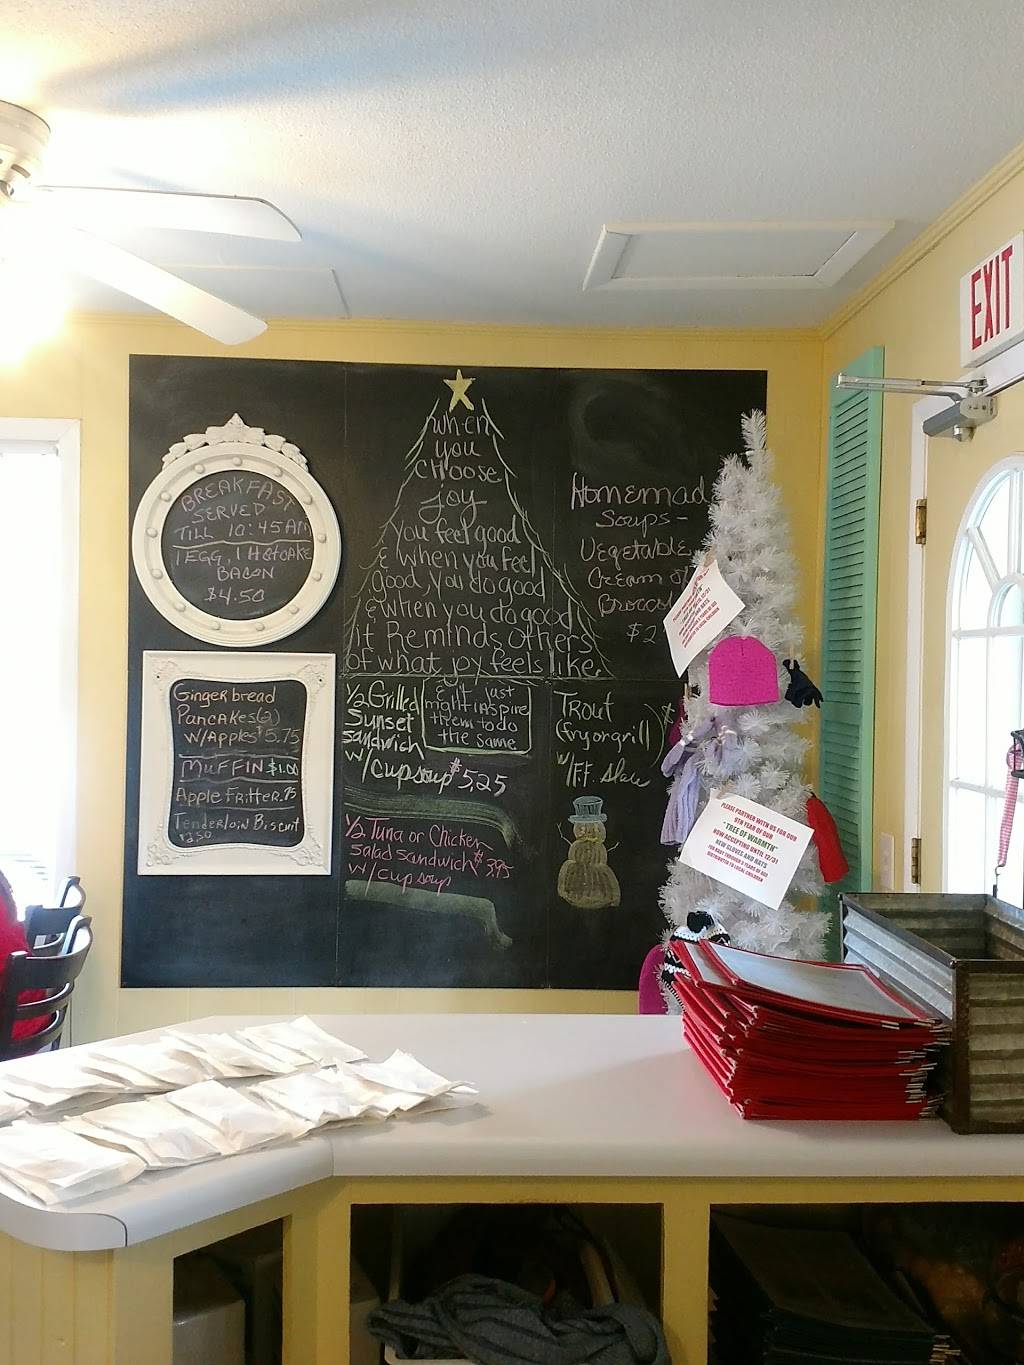 EXIT
BREAKFAST
SERVED
TILL 10:45AM
1 EGG, 1 HOTCAKE
BACON
$4.50
Gingerbread
PANCAKES(2)
W/APPLES $5.75
MUFFIN $1.00
Apple Fritter .75
Tenderloin Biscuit
when
you
CHOOSE
joy
you feel good
& when you feel
good, you do good
& when you do good
it Reminds others
of what joy feels like
& it just
might inspire
them to do
the same
1/2 Grilled
Sunset
Sandwich
w/cup soup $5.25
1/2 Tuna or Chicken
Salad Sandwich $3.95
w/cup soup
Homemad
Soups-
Vegetable
Cream of
Brocco
$2
Trout
(fry or grill) $
w/F.F. Slaw
PLEASE PARTNER WITH US FOR OUR
9TH YEAR OF OUR
"TREE OF WARMTH"
NOW ACCEPTING UNTIL 12/31
NEW GLOVES AND HATS
FOR BABY THROUGH 5 YEARS OF AGE
DISTRIBUTED TO LOCAL CHILDREN